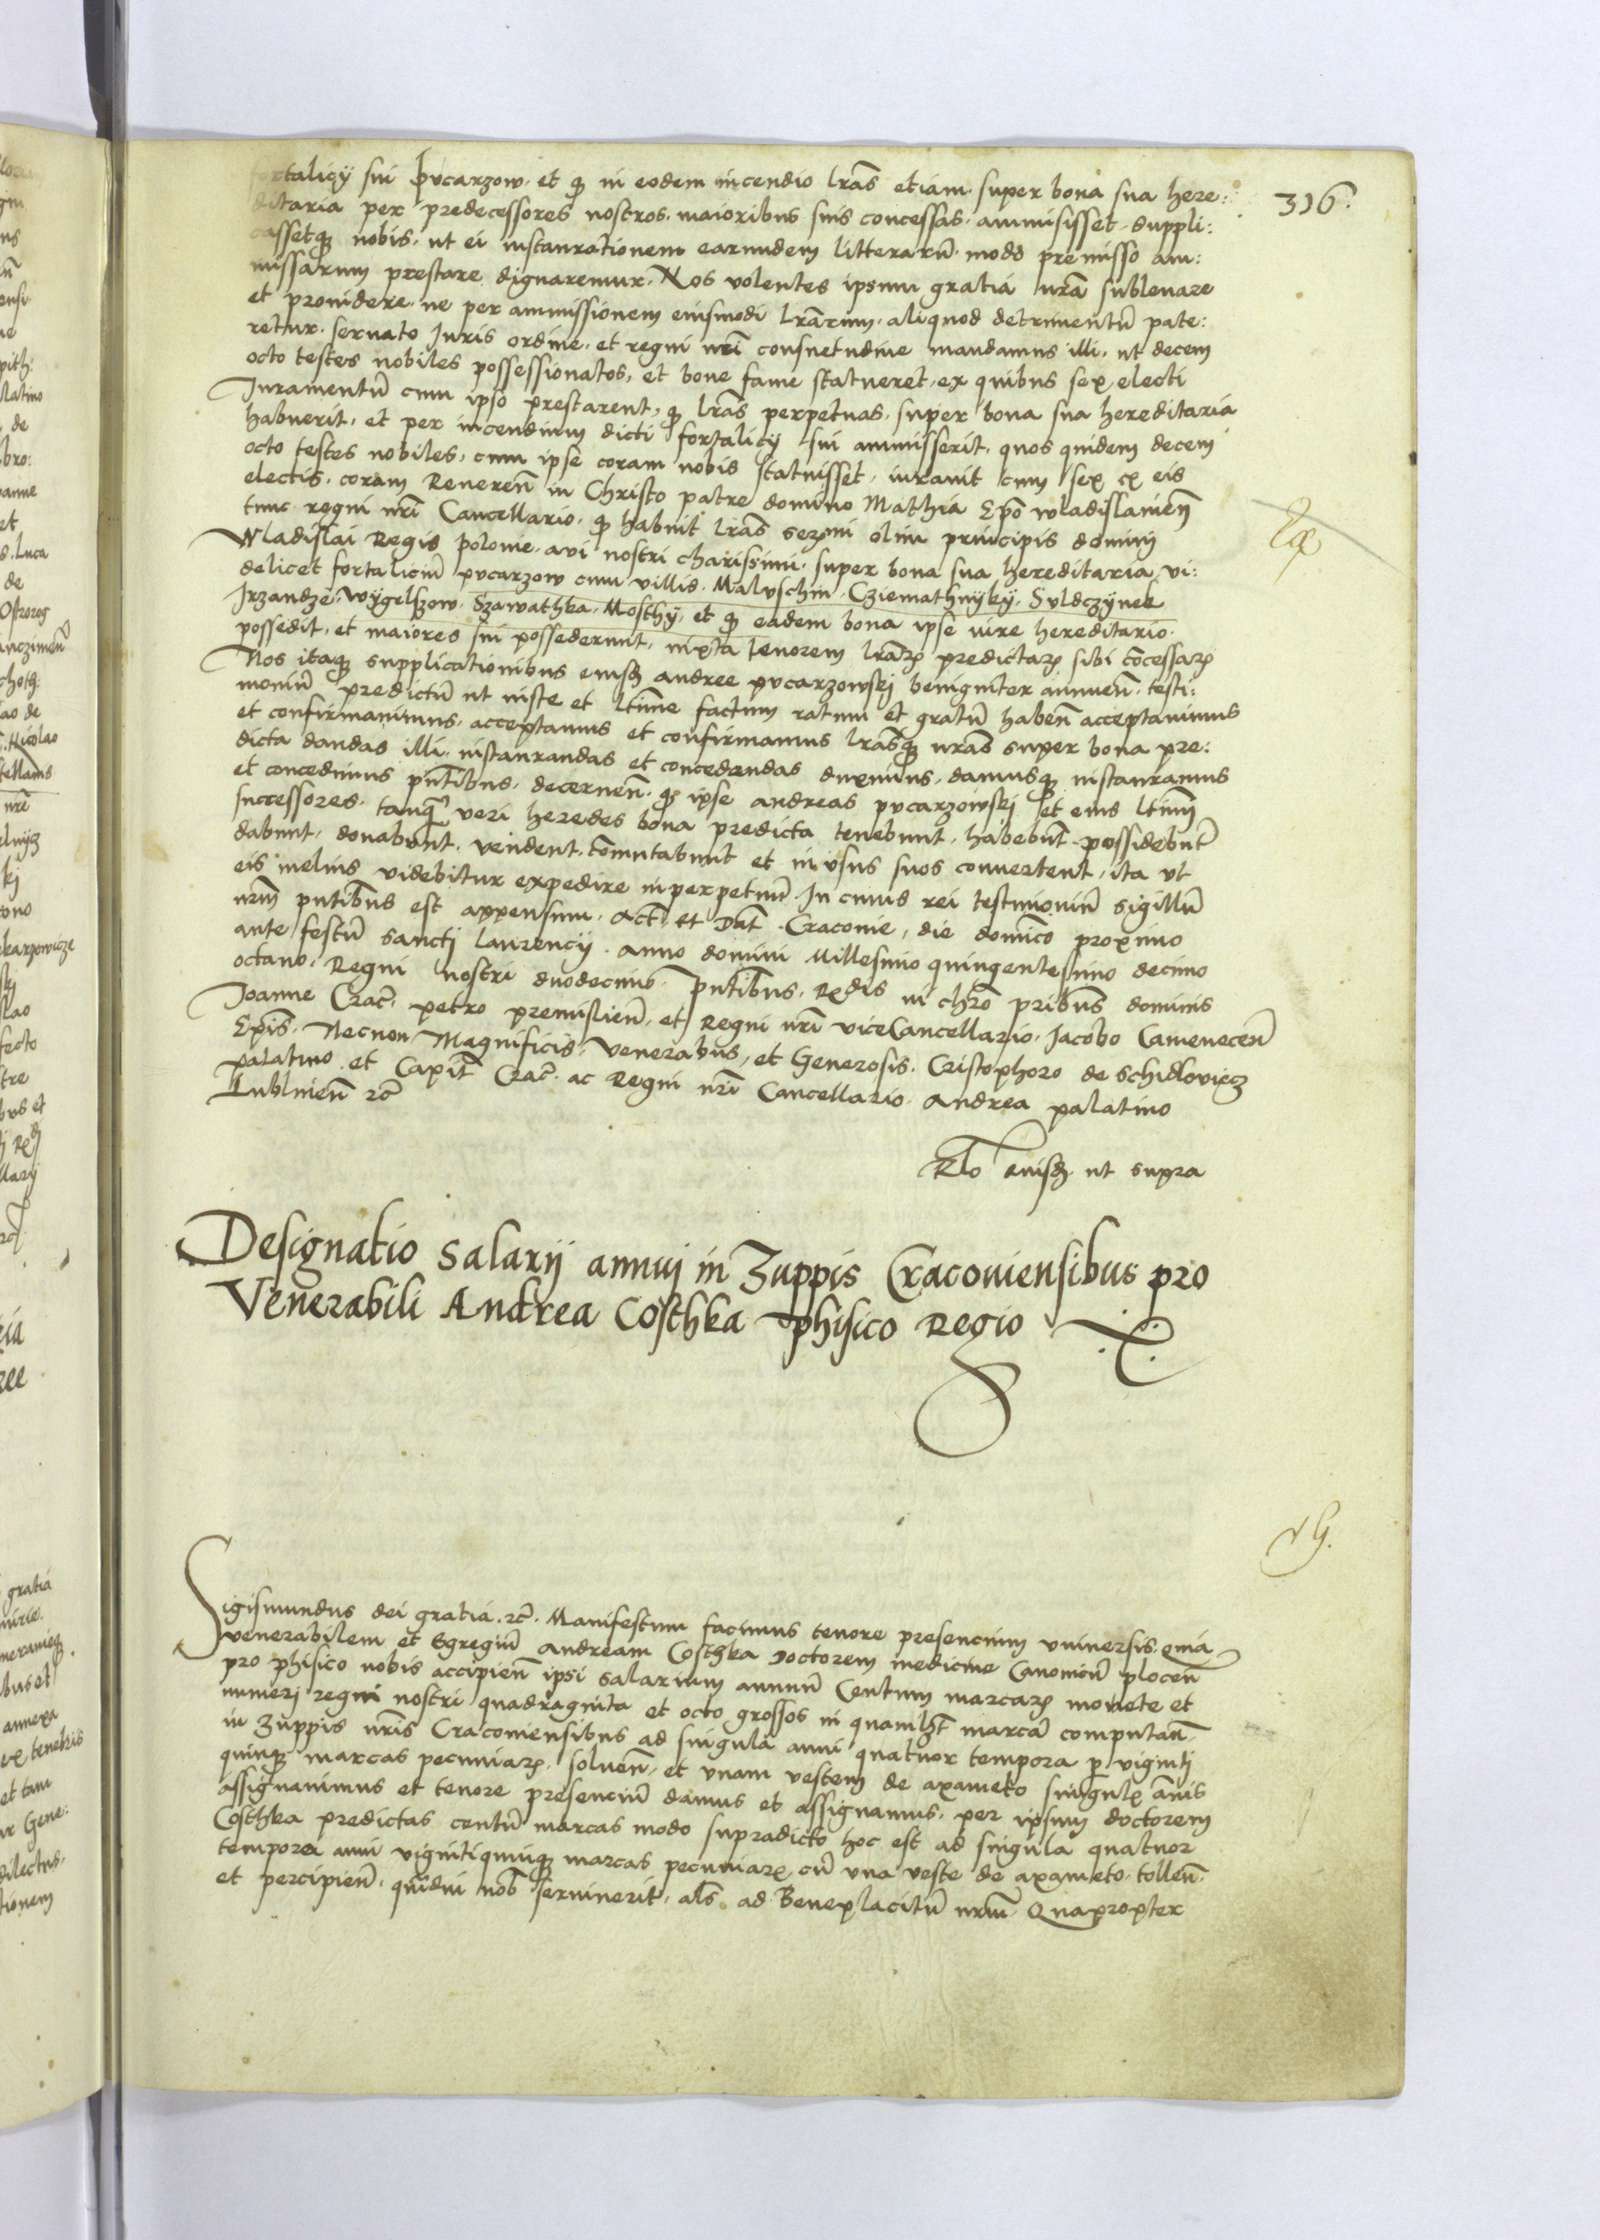 316.
fortalicÿ sui pucarzow. et q̄ in eodem incendio lr̄as etiam super bona sua here:
ditaria per predecessores nostros. maioribus suis concessas. ammisisset. suppli:
cassetq̄ nobis. ut ei instaurationem earundem litterarū. modo premisso am:
missarum prestare dignaremur. Nos volentes ipsum gratia nr̄a sublevare
et providere. ne per ammissionem eiusmodi lr̄arum. aliquod detrimentū pate:
retur. servato Juris ordine. et regni nr̄i consuetudine mandamus illi. ut decem
octo testes nobiles possessionatos, et bone fame statueret. ex quibus sex electi
Juramentū cum ipso prestarent, q̄ lr̄as perpetuas. super bona sua hereditaria
habuerit, et per incendium dicti fortalicÿ sui ammisserit. quos quidem decem
octo testes nobiles, cum ipse coram nobis statuisset, iuravit cum sex ex eis
electis. coram Reveren̄ in Christo patre domino Mathia Ep̄o wladislavien̄
tunc regni nr̄i Cancellario. q̄ habuit lr̄as serm̄i olim principis domini
Wladislai Regis polonie. avi nostri charissimi. super bona sua hereditaria vi:
delicet fortaliciū pucarzow cum villis. Maluschin. Cziemathnyky. Suldczÿnek
Irzandze. wÿgelszow. Szawathka. Mosthÿ, et q̄ eadem bona ipse iure hereditario.
possedit, et maiores sui possederunt, iuxta tenorem lr̄arꝫ predictarꝫ sibi cōcessarꝫ
Nos itaq̄ supplicationibus eiusꝫ andree pucarzowskj benigniter annuen̄. testi:
moniū predictū ut iuste et ltīme factum ratum et gratū haben̄ acceptavimus
et confirmavimus. acceptamus et confirmamus lr̄asq̄ nr̄as super bona pre:
dicta dandas illi. instaurandas et concedendas duximus. damusq̄ instauramus
et concedimus pn̄tibus. decernen̄. q̄ ipse andreas pucarzowskj et eius ltīmi
successores. tanq̄ veri heredes bona predicta tenebunt. habebūt. possidebūt
dabunt. donabunt. vendent. cōmutabunt et in usus suos convertent, ita ut
eis melius videbitur expedire inperpetuū. In cuius rei testimoniū sigillū
nr̄m pn̄tibus est appensum. Act̄. et Dat̄. Cracovie, die domīco proximo
ante festū sanctj laurencÿ. anno domini Millesimo quingentesimo decimo
octavo. Regni nostri duodecimo. pn̄tibus. Rx̄dis in chr̄o pr̄ibus dominis
Joanne Crac̄. petro premislien̄, et Regni nr̄i viceCancellario. Jacobo Camenecen̄
Ep̄is. Necnon Magnificis, Venerabus, et Generosis. Cristophoro de schidloviecz
palatino et Capit̄ Crac̄. ac Regni nr̄i Cancellario. Andrea palatino
Lublinen̄ ꝛc̄
Rl̄o euisꝫ. ut supra
Designatio Salarij annuj in Zuppis Cracoviensibus pro
Venerabili Andrea Costhka phisico Regio
Sigismundus dei gratia. ꝛc̄. Manifestum facimus tenore presencium universis. quia
venerabilem et Egregiū Andream Costhka Doctorem medicine Canonicū plocen̄
pro phisico nobis accipien̄ ipsi salarium annuū Centum marcarꝫ monete et
numerj regni nostri quadraginta et octo grossos in quamlꝫt marcā computan̄.
in Zuppis nr̄is Cracoviensibus ad singula anni quatuor tempora p̱ vigintj
quinq̄ marcas pecuniarꝫ. solven̄. et unam vestem de axameto singul᷒ ān̄is
assignavimus et tenore presenciū damus et assignamus. per ipsum doctorem
Costhka predictas centū marcas modo supradicto hoc est ad singula quatuor
tempora anni vigintiquinq̄ marcas pecuniarꝫ cū una veste de axameto. tollen̄.
et percipien̄. quādiu nob̄ servinerit, al̄s ad Beneplacitū nr̄um. Quapropter